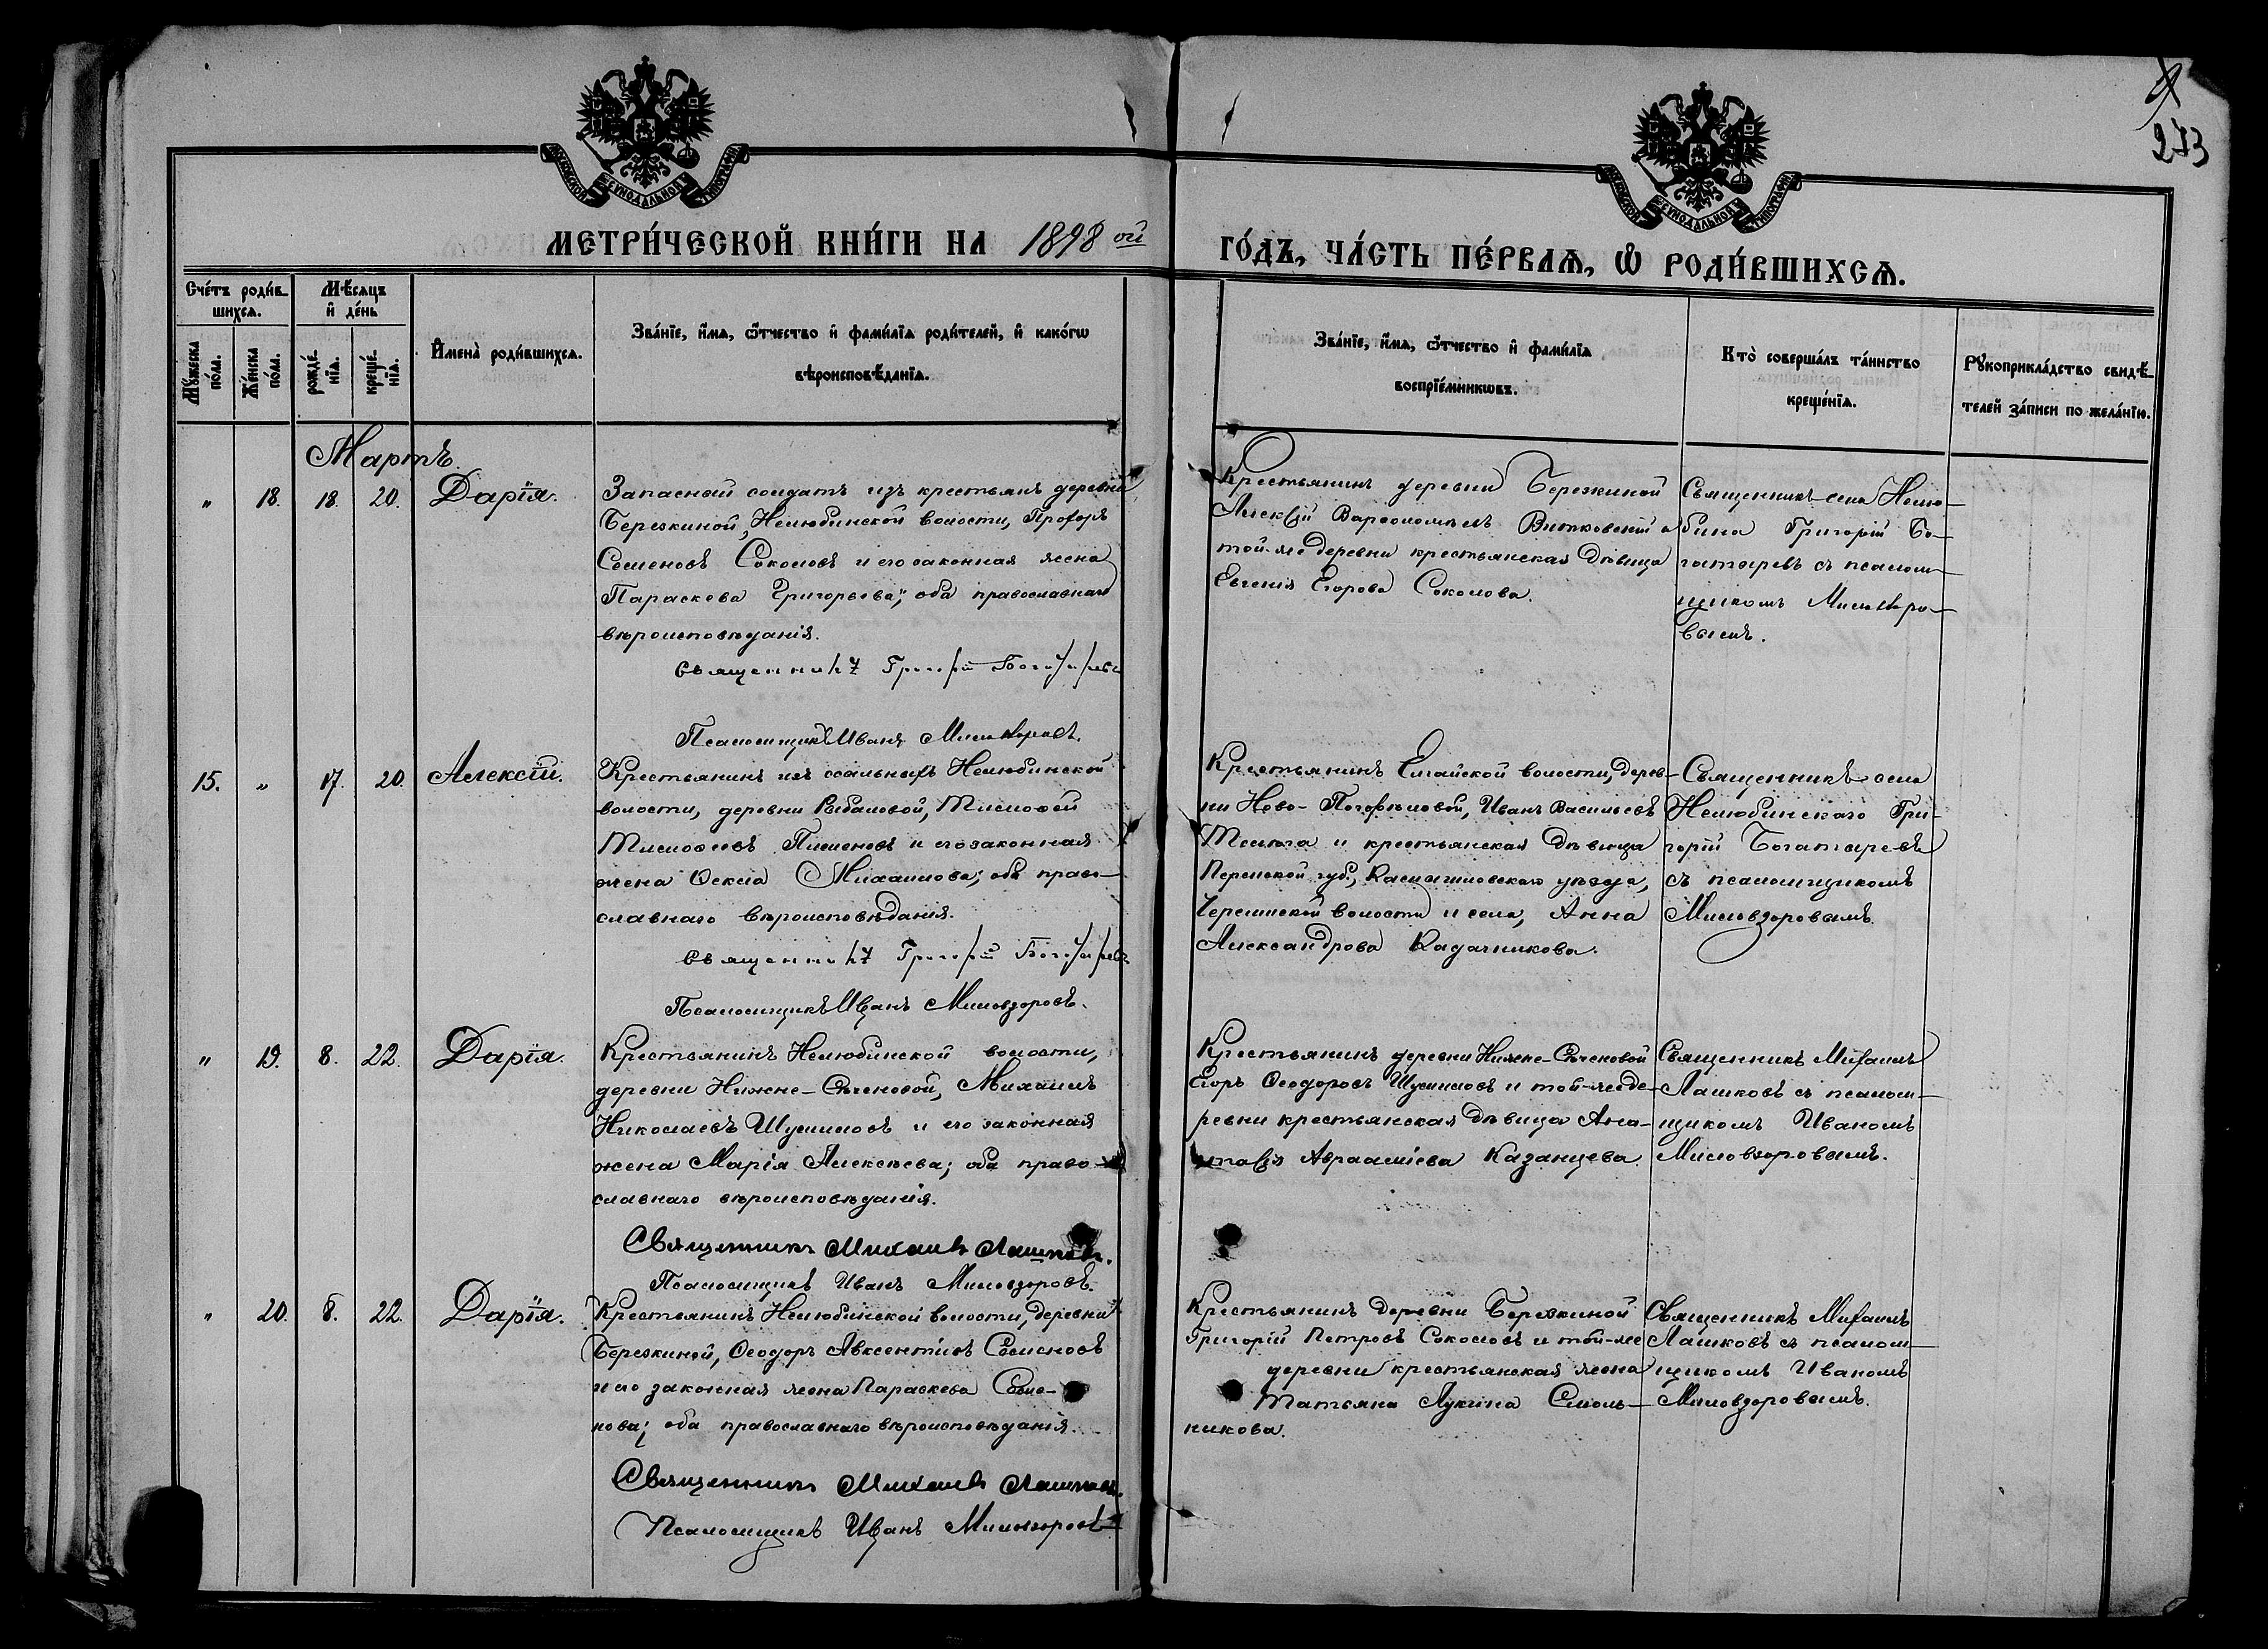 9
273
МОСКОВСКОЙ СѴНОДАЛЬНОЙ ТИПОГРАФІИ
МОСКОВСКОЙ СѴНОДАЛЬНОЙ ТИПОГРАФІИ
МЕТРИ́ЧЕСКОЙ КНИ́ГИ НА 1898 ой
ГО́ДЪ, ЧА́СТЬ ПЕ́РВАѦ, Ѽ РОДИ́ВШИХСѦ.
Сче́тъ роди́в-
шихсѧ.
Мꙋ́жеска
по́ла.
Же́нска
по́ла.
Мѣ́сѧцъ
и҆ де́нь
рожде́-
нїѧ.
креще́-
нїѧ.
И҆мена̀ роди́вшихсѧ.
Зва́нїе, и҆́мѧ, ѻ҆́тчество и҆ фами́лїѧ роди́телей, и҆ како́гѡ
вѣроисповѣ́данїѧ.
Зва́нїе, и҆́мѧ, ѻ҆́тчество и҆ фами́лїѧ
воспрїе́мникѡвъ.
Кто̀ соверша́лъ та́инство
креще́нїѧ.
Рꙋкоприкла́дство свидѣ́-
телей за́писи по жела́нїю.
Мартъ.
„ 18. 18. 20. Дарія.
Запасный солдатъ изъ крестьянъ деревни
Березкиной, Нелюбинской волости, Прохоръ
Семеновъ Соколовъ и его законная жена
Параскева Григорьева; оба православнаго
вѣроисповѣданія.
Священникъ Григорій Богатыревъ
Псаломщикъ Иванъ Миловзоровъ.
Крестьянинъ деревни Березкиной
Алексѣй Варѳоломѣевъ Витковскій и
той-же деревни крестьянская дѣвица
Евгенія Егорова Соколова.
Священникъ села Нелю-
бина Григорій Бо-
гатыревъ съ псалом-
щикомъ Миловзоро-
вымъ.
15. „ 17. 20. Алексій.
Крестьянинъ изъ ссыльныхъ Нелюбинской
волости, деревни Рыбаловой, Тимоѳей
Тимоѳеевъ Пименовъ и его законная
жена Ѳекла Михаилова; оба право-
славнаго вѣроисповѣданія.
Священникъ Григорій Богатыревъ
Псаломщикъ Иванъ Миловзоровъ.
Крестьянинъ Елгайской волости, дерев-
ни Ново-Погорѣловой, Иванъ Васильевъ
и крестьянская дѣвица
Пермской губ., Камышловскаго уѣзда,
волости и села, Анна
Александрова Кадачникова.
Священникъ села
Нелюбинскаго Гри-
горій Богатыревъ
съ псаломщикомъ
Миловзоровымъ.
„ 19. 8. 22. Дарія.
Крестьянинъ Нелюбинской волости,
деревни Нижне-Сѣченовой, Михаилъ
Николаевъ Шумиловъ и его законная
жена Марія Алексѣева; оба право-
славнаго вѣроисповѣданія.
Священникъ Михаилъ Лашковъ.
Псаломщикъ Иванъ Миловзоровъ.
Крестьянинъ деревни Нижне-Сѣченовой
Егоръ Ѳеодоровъ Шумиловъ и той-же де-
ревни крестьянская дѣвица Ана-
стасія Авраамiева Казанцева.
Священникъ Михаилъ
Лашковъ съ псалом-
щикомъ Иваномъ
Миловзоровымъ.
„ 20. 8. 22. Дарія.
Крестьянинъ Нелюбинской волости, деревни
Березкиной, Ѳеодоръ Авксентіевъ Семеновъ
и его законная жена Параскева Семе-
нова; оба православнаго вѣроисповѣданія.
Священникъ Михаилъ Лашковъ.
Псаломщикъ Иванъ Миловзоровъ
Крестьянинъ деревни Березкиной
Григорій Петровъ Соколовъ и той-же
деревни крестьянская жена
Татьяна Лукина Смоль-
никова.
Священникъ Михаилъ
Лашковъ съ псалом-
щикомъ Иваномъ
Миловзоровымъ.